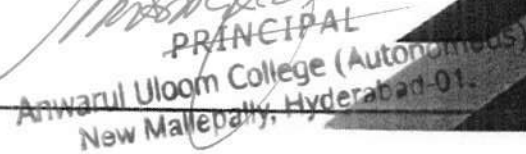 PRINCIPAL
Anwarul Uloom College (Autonomous)
New Mallepally, Hyderabad-01.